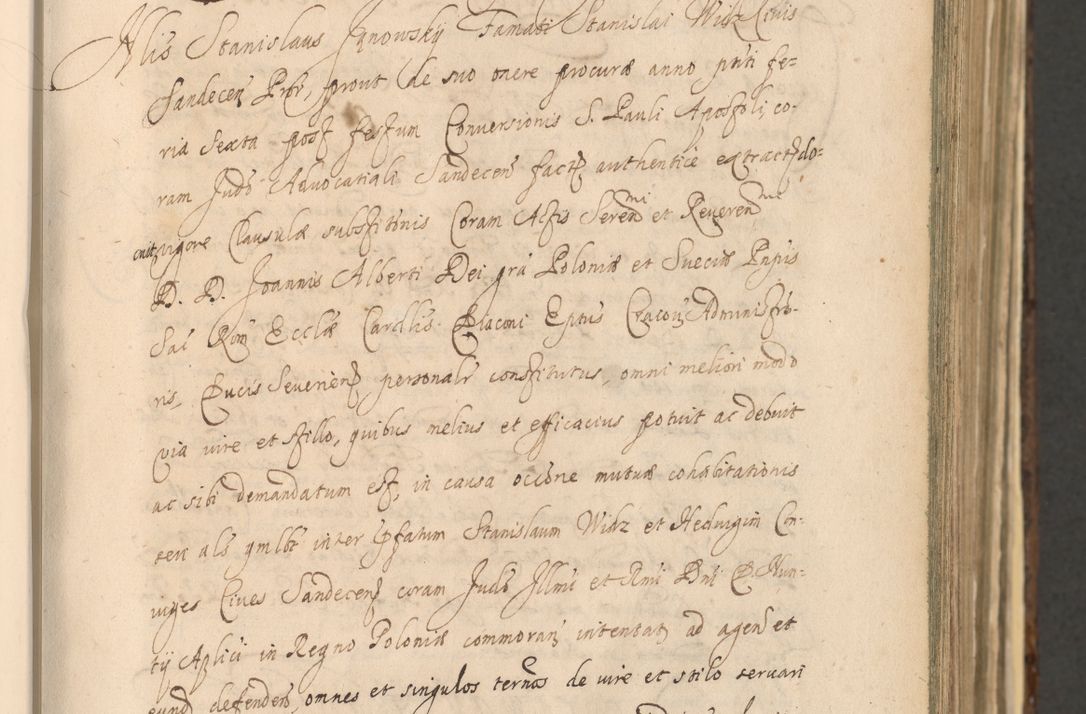 Nlis Stanislaus Jgnowskÿ Famati Stanislai Widz Civis
Sandecen̄ Pro͞r, prout de suo onere procuræ anno pn͞ti fe=
ria Sexta post festum Conversionis S. Pauli Apostoli co-
ram Jud͞o Advocatiali Sandecen̄ facto authentice extracto do=
cuit, vigore Clausulæ substit͞onis Coram Actis Seren̄mi et Reveren̄mi
D. D. Joannis Alberti Dei gr͞a Poloniæ et Sueciæ Pn͞pis
Sa͞e Rom̄ Eccl͞æ Card͞lis Diaconi Ep͞tus Cracov̄ Administr͞o-
ris, Ducis Severien̄ personal͞r constitutus, omni meliori modo
via iure et stillo, quibus melius et efficacius potuit ac debuit
ac sibi demandatum est, in causa occ͞one mutuæ cohabitationis
seu al͞s gm͞lbt inter P͞fatum Stanislaum Widz et Hedvigim Con-
iuges Cives Sandecen̄ coram Jud͞o Jll͞mi et R͞mi D͞ni D. Nun=
tÿ Ap͞lici in Regno Poloniæ commoran̄ intentat, ad agen̄ et
eund defenden̄, omnes et singulos ternos de iure et stilo servari